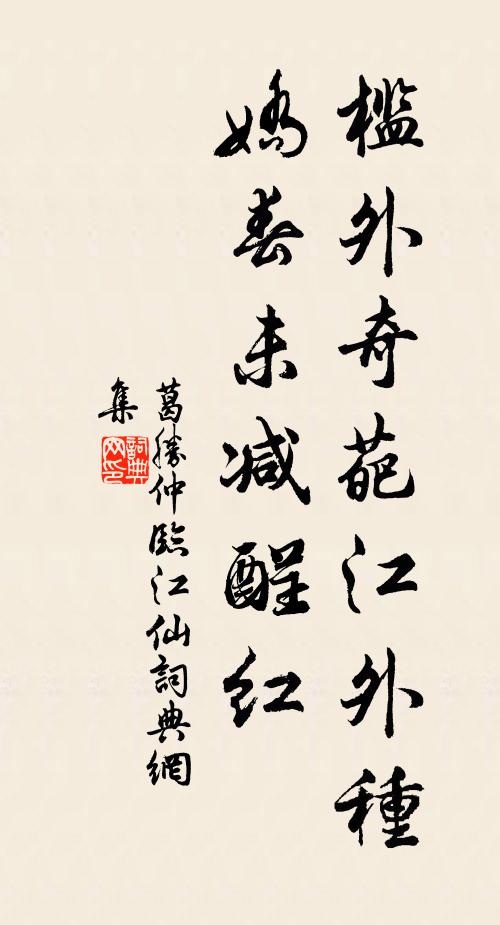 檻外奇葩江外種
嬌春未減酲紅
葛勝仲臨江仙詞典網
集
詞典
网印